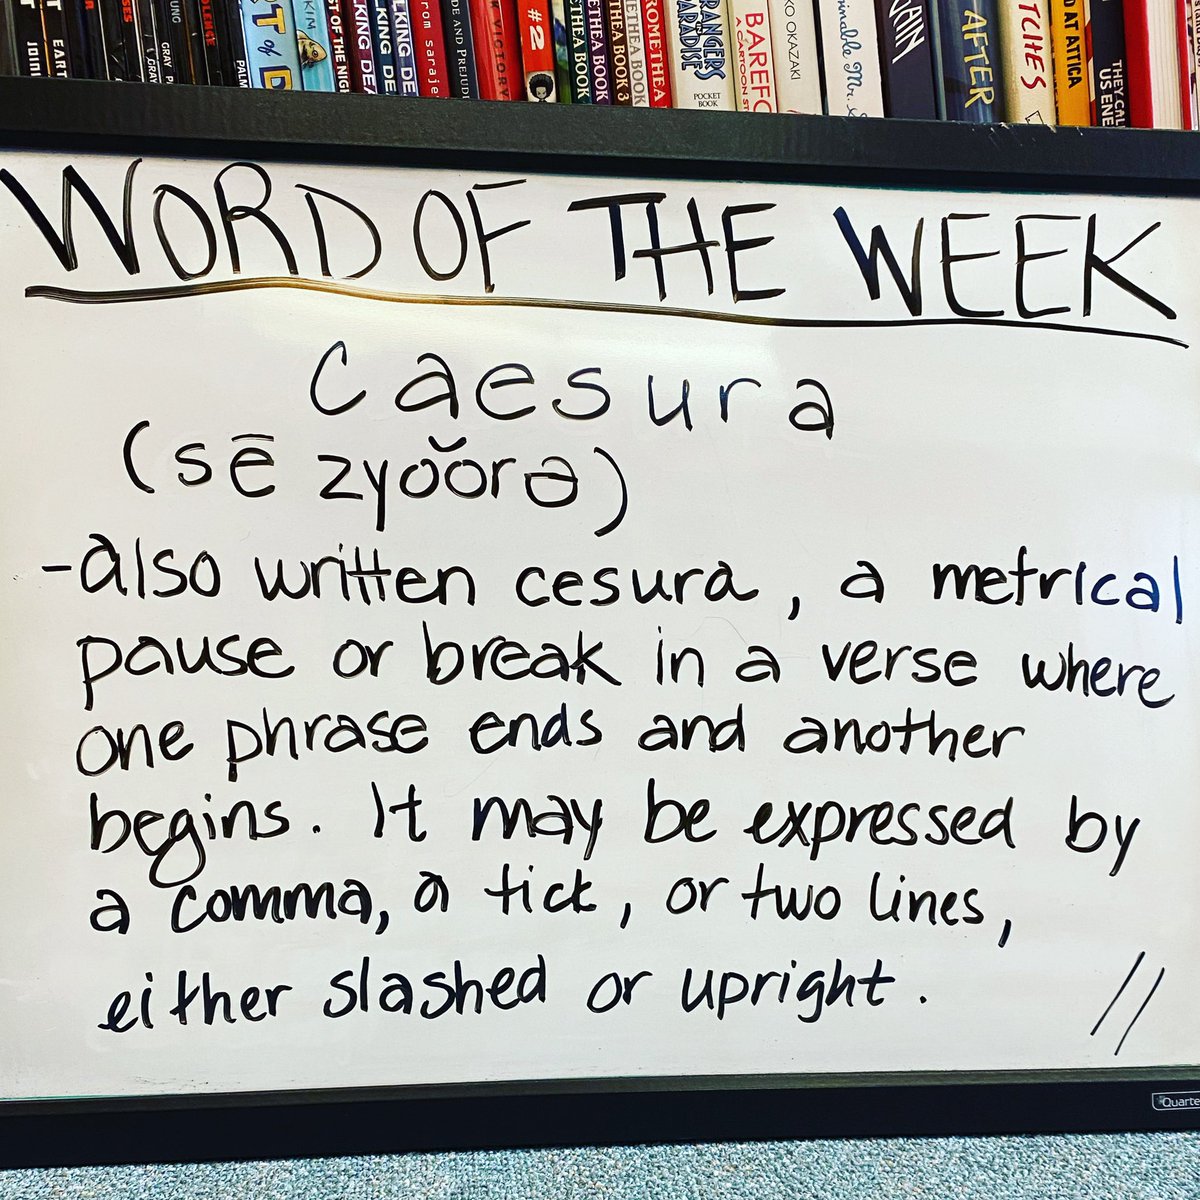 EART
JOIN
GRAY
GRAY
PALM
ART of
KIN
ST OF THE NIGH
KING DE
LKING DEA
LKING DE
rom sarajev
DE AND PREJUDI
VICTORY
#2
ETHEA BOOK
METHEA BOOK
METHEA BOOK 3
PROMETHEA
STRANGERS
in
PARADISE
POCKET
BOOK
BAREFO
A CARTOON ST
KO OKAZAKI
minable Mr.
AFTER
TCHES
D AT ATTICA
THEY CALL
US ENE
WORD OF THE WEEK
Caesura
(sē zyo͝orə)
-also written cesura, a metrical
pause or break in a verse where
one phrase ends and another
begins. It may be expressed by
a comma, a tick, or two lines,
either slashed or upright. //
Quarte